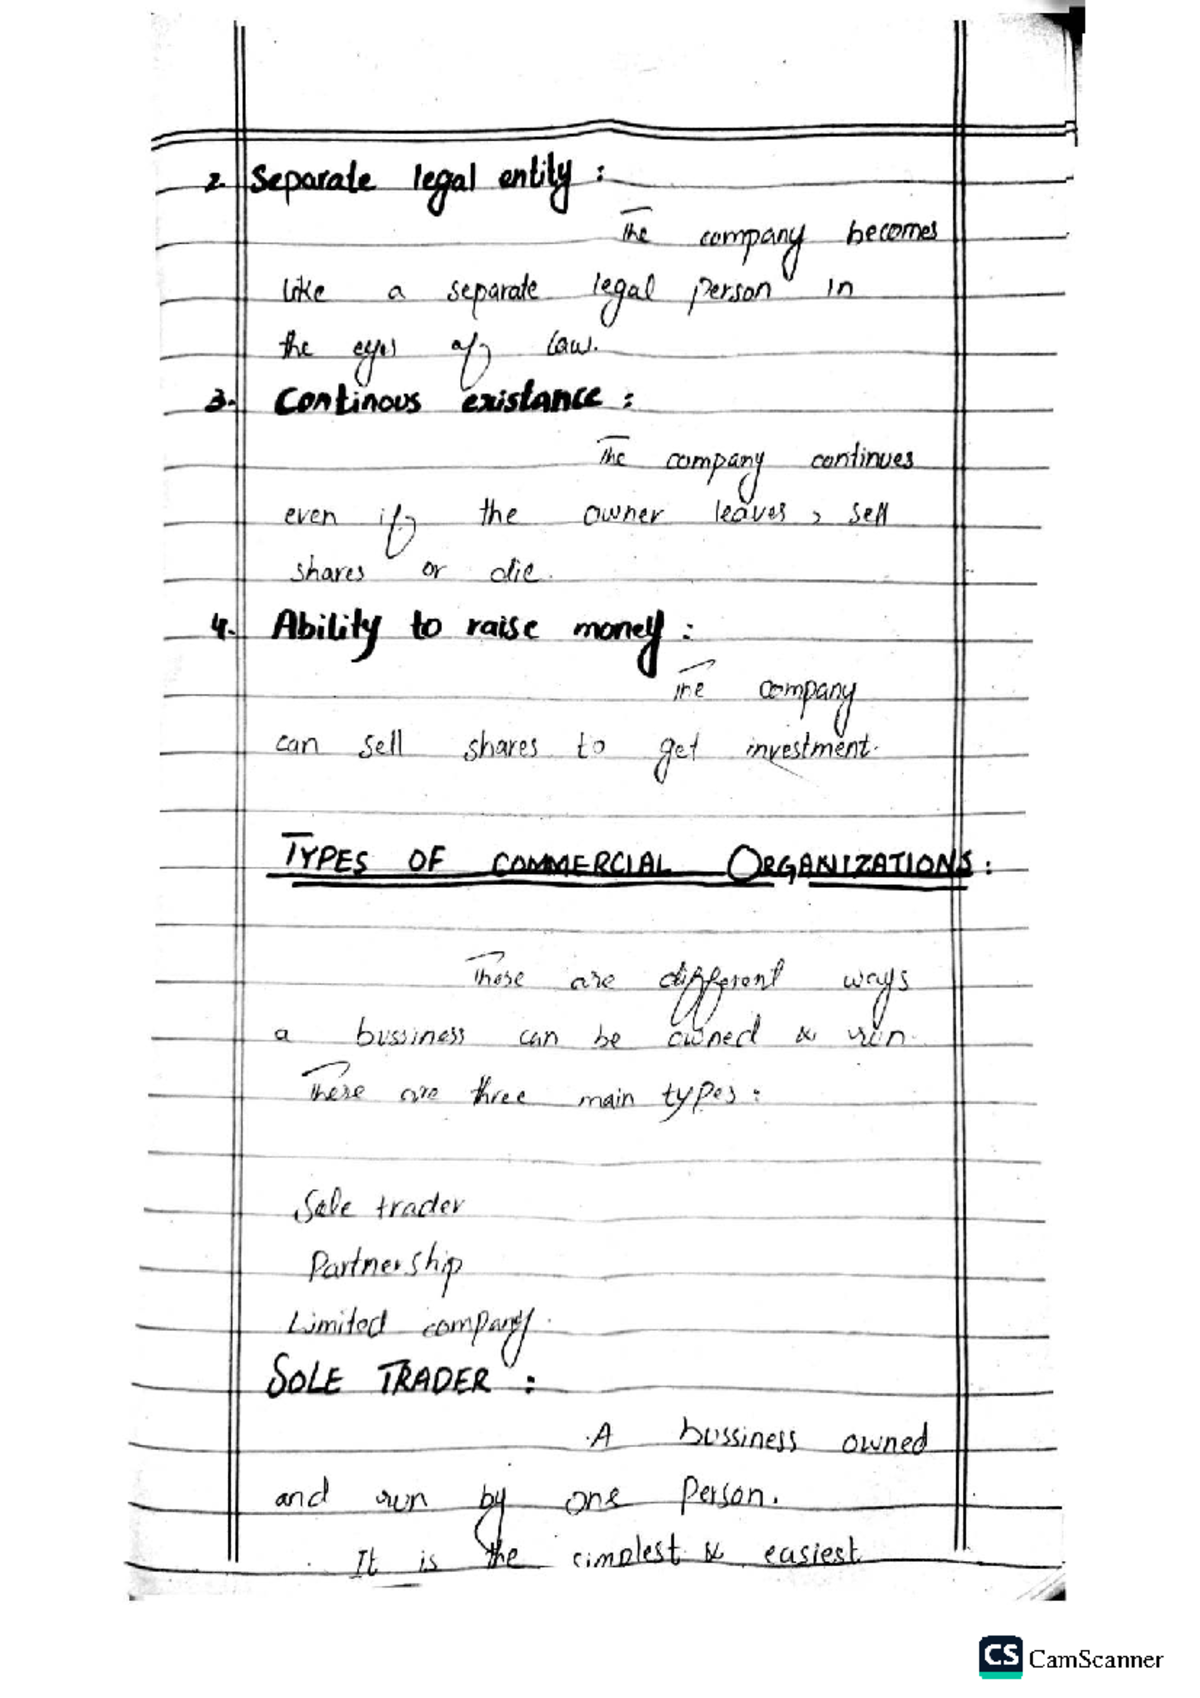 2. Separate legal entity :
The company becomes
like a separate legal person in
the eyes of law.
3. Continous existance :
The company continues
even if the owner leaves, sell
shares or die.
4. Ability to raise money :
The company
can sell shares to get investment.
TYPES OF COMMERCIAL ORGANIZATIONS :
These are different ways
a bussiness can be owned & run.
There are three main types :
Sole trader
Partnership
Limited company.
SOLE TRADER :
A bussiness owned
and run by one person.
It is the simplest & easiest
CS CamScanner